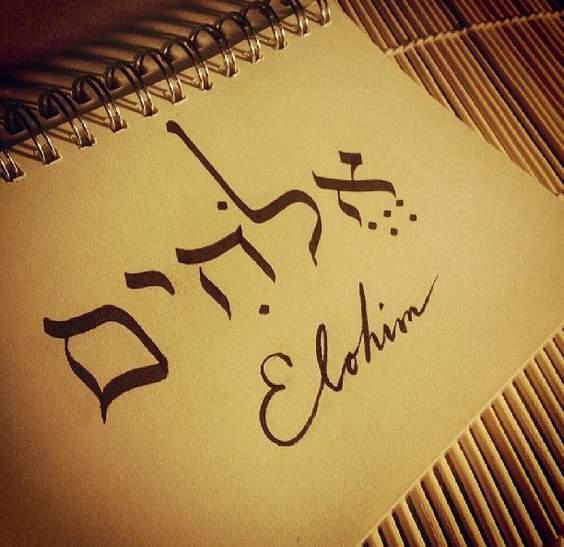 אֱלֹהִים
Elohim